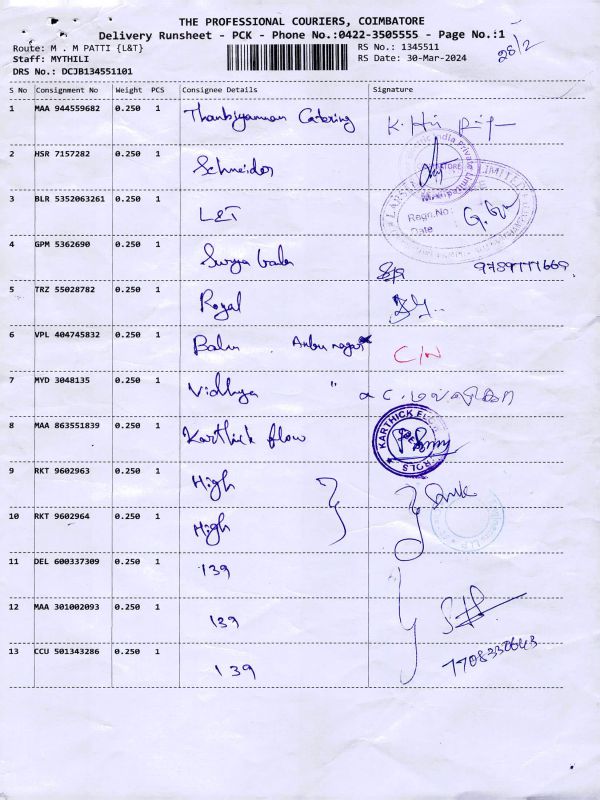 THE PROFESSIONAL COURIERS, COIMBATORE
Delivery Runsheet - PCK - Phone No.:0422-3505555 - Page No.:1
28/2
Route: M . M PATTI {L&T}
RS No.: 1345511
Staff: MYTHILI
RS Date: 30-Mar-2024
DRS No.: DCJB134551101
S No Consignment No Weight PCS Consignee Details Signature
1 MAA 944559682 0.250 1 Catering
2 HSR 7157282 0.250 1 Schneider
3 BLR 5352063261 0.250 1 L&T
Regn.No:
Date
4 GPM 5362690 0.250 1 Surya bala
5 TRZ 55028782 0.250 1 Royal
6 VPL 404745832 0.250 1 Balu . Anbu nagar C/N
7 MYD 3048135 0.250 1 Vidhya "
8 MAA 863551839 0.250 1 Karthick flow
9 RKT 9602963 0.250 1 High
10 RKT 9602964 0.250 1 High
11 DEL 600337309 0.250 1 139
12 MAA 301002093 0.250 1 139
13 CCU 501343286 0.250 1 139